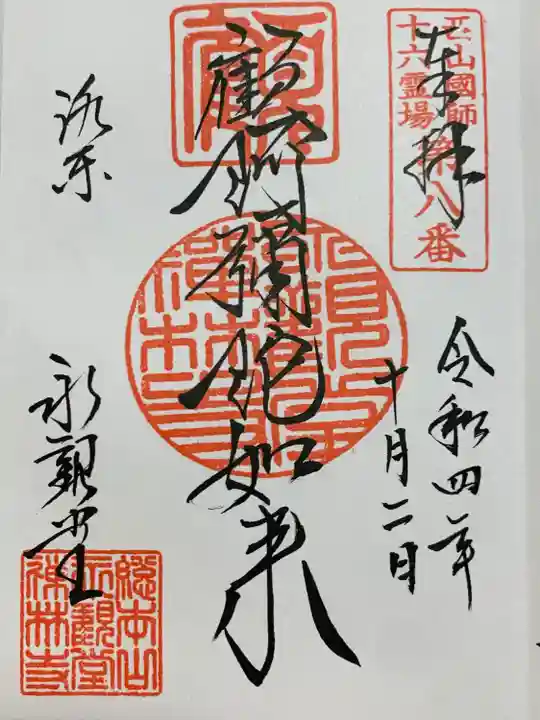 西山國師
十六霊場
第八番
奉拝
令和四年
十月二日
顧阿彌陀如来
洛東
永観堂
總本山
永観堂
禅林寺